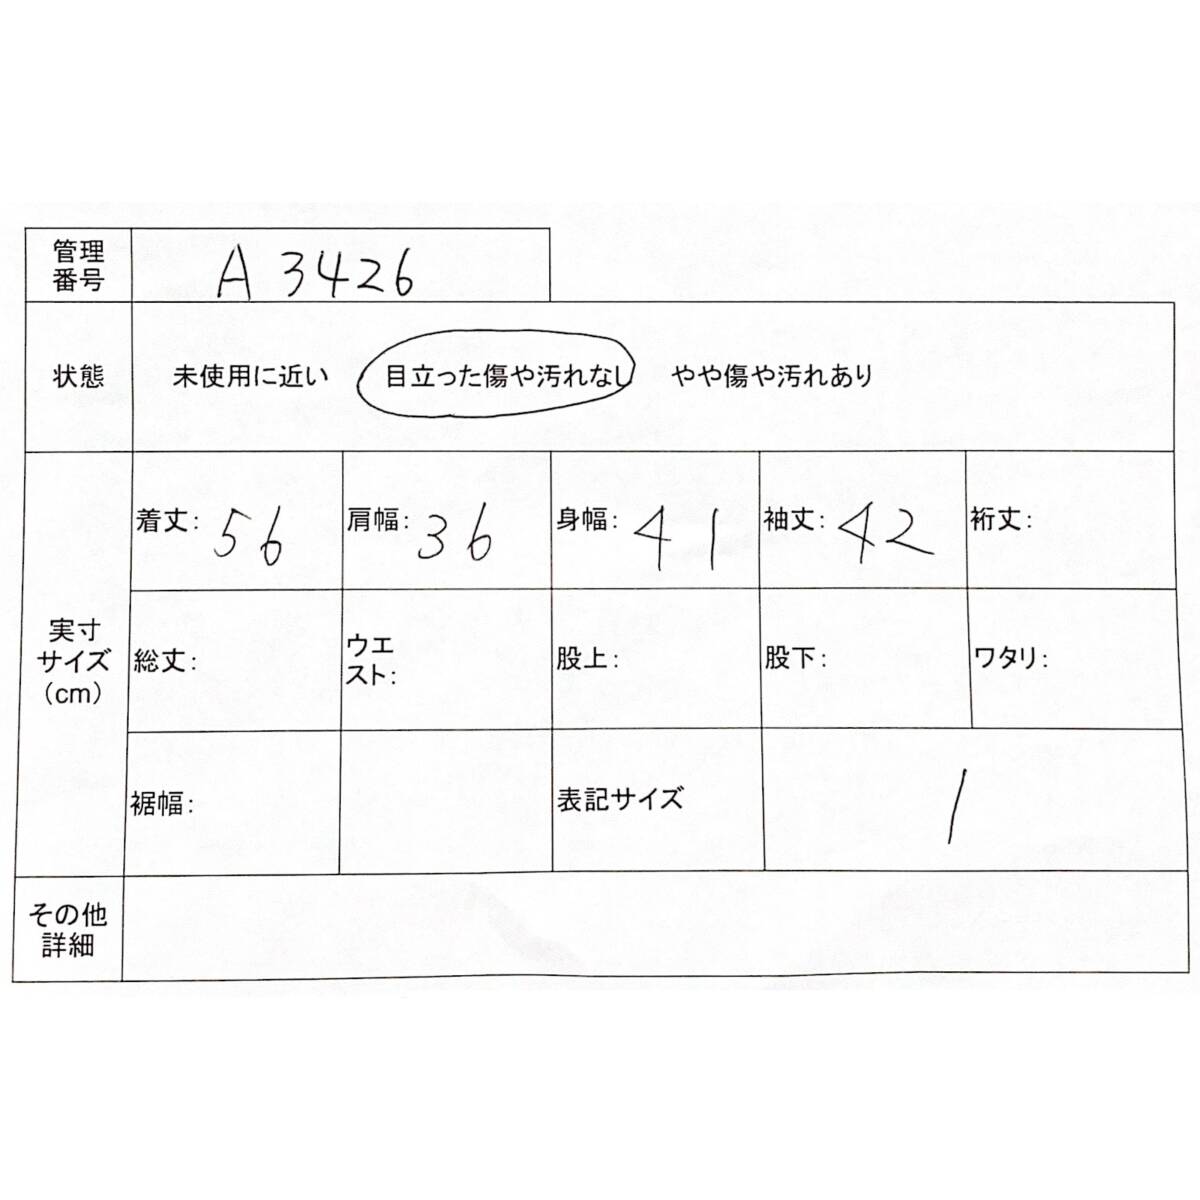 管理
番号
A 3426
状態
未使用に近い 目立った傷や汚れなし やや傷や汚れあり
実寸
サイズ
(cm)
着丈: 56
肩幅: 36
身幅: 41
袖丈: 42
裄丈:
総丈:
ウエ
スト:
股上:
股下:
ワタリ:
裾幅:
表記サイズ
1
その他
詳細